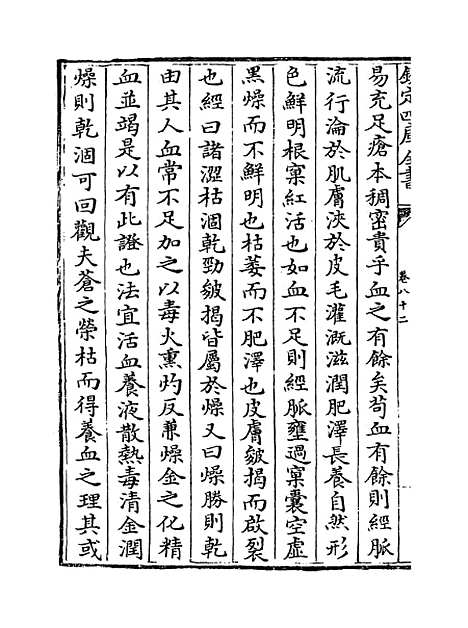 欽定四庫全書
卷八十二
易充足瘡本稠密貴乎血之有餘矣苟血有餘則經脈
流行淪於肌膚浹於皮毛灌溉滋潤肥澤長養自然形
色鮮明根窠紅活也如血不足則經脈壅遏窠囊空虛
黑燥而不鮮明也枯萎而不肥澤也皮膚皴揭而啟裂
也經曰諸澀枯涸乾勁皴揭皆屬於燥又曰燥勝則乾
由其人血常不足加之以毒火熏灼反兼燥金之化精
血並竭是以有此證也法宜活血養液散熱毒清金潤
燥則乾涸可回觀夫蒼之榮枯而得養血之理其或